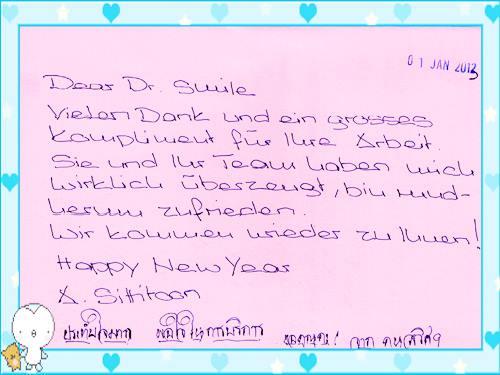 01 JAN 2013
Dear Dr. Smile
Vielen Dank und ein grosses
Kompliment für Ihre Arbeit.
Sie und Ihr Team haben mich
wirklich überzeugt, bin rund-
herum zufrieden.
Wir kommen wieder zu Ihnen!
Happy New Year
A. Sittitoon
ประทับใจมาก พอใจในการบริการ ขอบคุณค่ะ! จาก